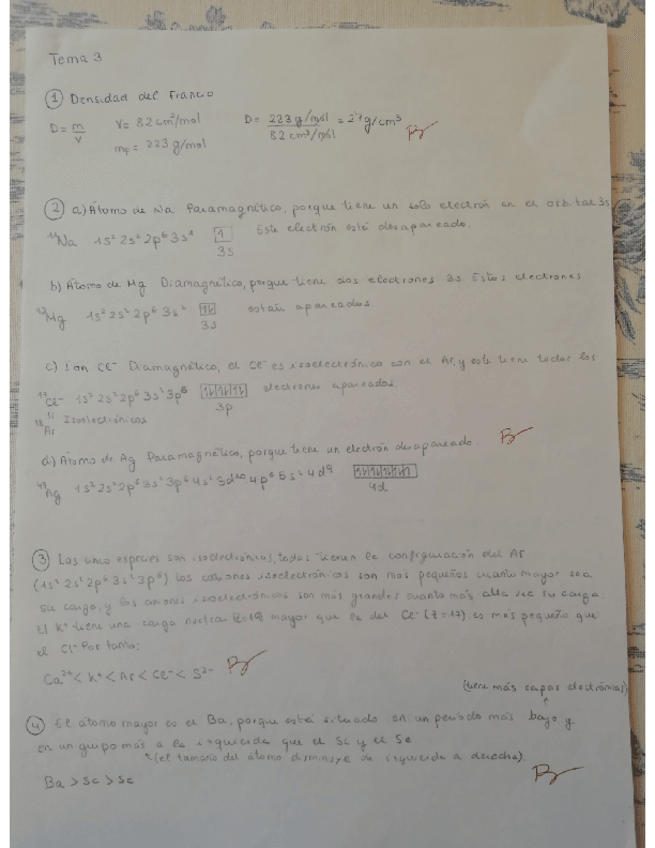 Tema 3
① Densidad del Francio
D = m/v   V = 82 cm³/mol   D = 223 g/mol / 82 cm³/mol = 2'7 g/cm³   B
mF = 223 g/mol
② a) Átomo de Na Paramagnético, porque tiene un solo electrón en el orbital 3s
¹¹Na 1s² 2s² 2p⁶ 3s¹   Este electrón está desapareado.
3s
b) Átomo de Mg Diamagnético, porque tiene dos electrones 3s Estos electrones
¹²Mg 1s² 2s² 2p⁶ 3s²   están apareados.
3s
c) Ion Cl⁻ Diamagnético, el Cl⁻ es isoelectrónico con el Ar, y este tiene todos los
¹⁷Cl⁻ 1s² 2s² 2p⁶ 3s² 3p⁶   electrones apareados.
3p
¹⁸Ar Isoelectrónicos
d) Átomo de Ag Paramagnético, porque tiene un electrón desapareado.   B
Ag 1s² 2s² 2p⁶ 3s² 3p⁶ 4s² 3d¹⁰ 4p⁶ 5s² 4d⁹
4d
③ Las cinco especies son isoelectrónicas, todas tienen la configuración del Ar
(1s² 2s² 2p⁶ 3s² 3p⁶). los cationes isoelectrónicos son más pequeños cuanto mayor sea
su carga, y los aniones isoelectrónicos son más grandes cuanto más alta sea su carga.
El K⁺ tiene una carga nuclear Z=19 mayor que la del Cl⁻ (Z=17) es más pequeño que
el Cl⁻ Por tanto:
Ca²⁺ < K⁺ < Ar < Cl⁻ < S²⁻   B
(tiene más capas electrónicas)
④ El átomo mayor es el Ba, porque está situado en un período más bajo y
en un grupo más a la izquierda que el Sc y el Se.
(el tamaño del átomo disminuye de izquierda a derecha).
Ba > Sc > Se   B